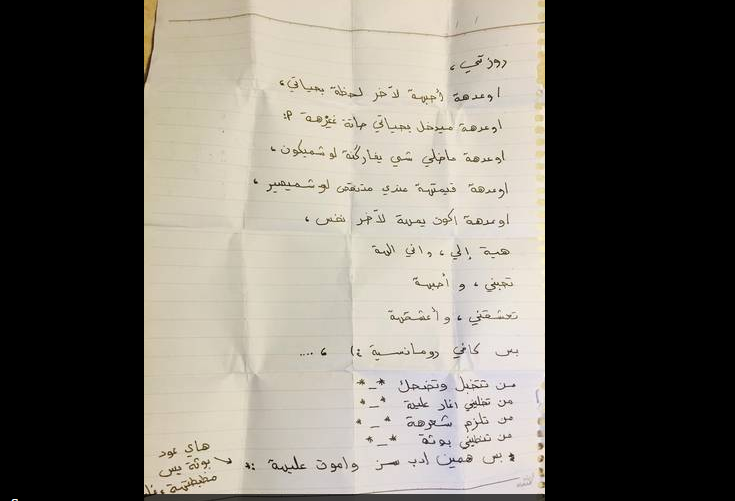 روزتي ،
اوعدهة أحبهة لآخر لحظة بحياتي،
اوعدهة ميدخل بحياتي حاتة غيرهة :P
اوعدهة ماخلي شي يفاركنة لو شميكون ،
اوعدهة قيمتهة عندي متنقص لو شميصير ،
اوعدهة اكون يمهة لآخر نفس ،
هية إلي ، واني الهة
تحبني ، و أحبهة
تعشقني ، وأعشقهة
بس كافي رومانسية :) ، ....
من تتخبل وتضحك *_*
من تخليني اغار عليهة *_*
من تلزم شعرهة *_*
من تنطيني بوثة *_*
بس همين ادب سز واموت عليهة :*
هاي عود
بوثة بس